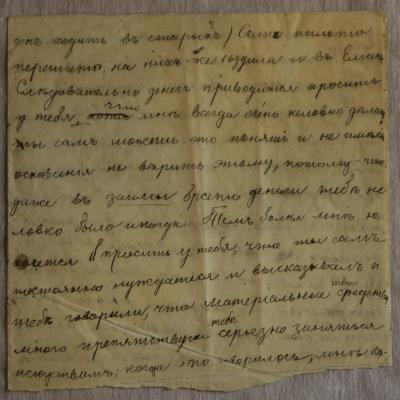 денъ ходить въ старыхъ) Сами пальто
перешито, на нихъ же ѣздили и въ
Слѣдовательно денегъ приводится просить
у тебя, что мнѣ всегда очень неловко дѣлать,
ты самъ можешь это понять и не имѣешь
основанія не вѣрить этому, потому-что
даже въ займы брать деньги тебѣ не
ловко было иногда. Тѣмъ болѣе мнѣ не
хочется просить у тебя, что ты самъ
постоянно нуждаешся и высказывалъ и
тебѣ говорили, что матеріальное средство
много препятствуютъ тебѣ серьезно заняться
искуствомъ; когда это говорилось, мнѣ ка-